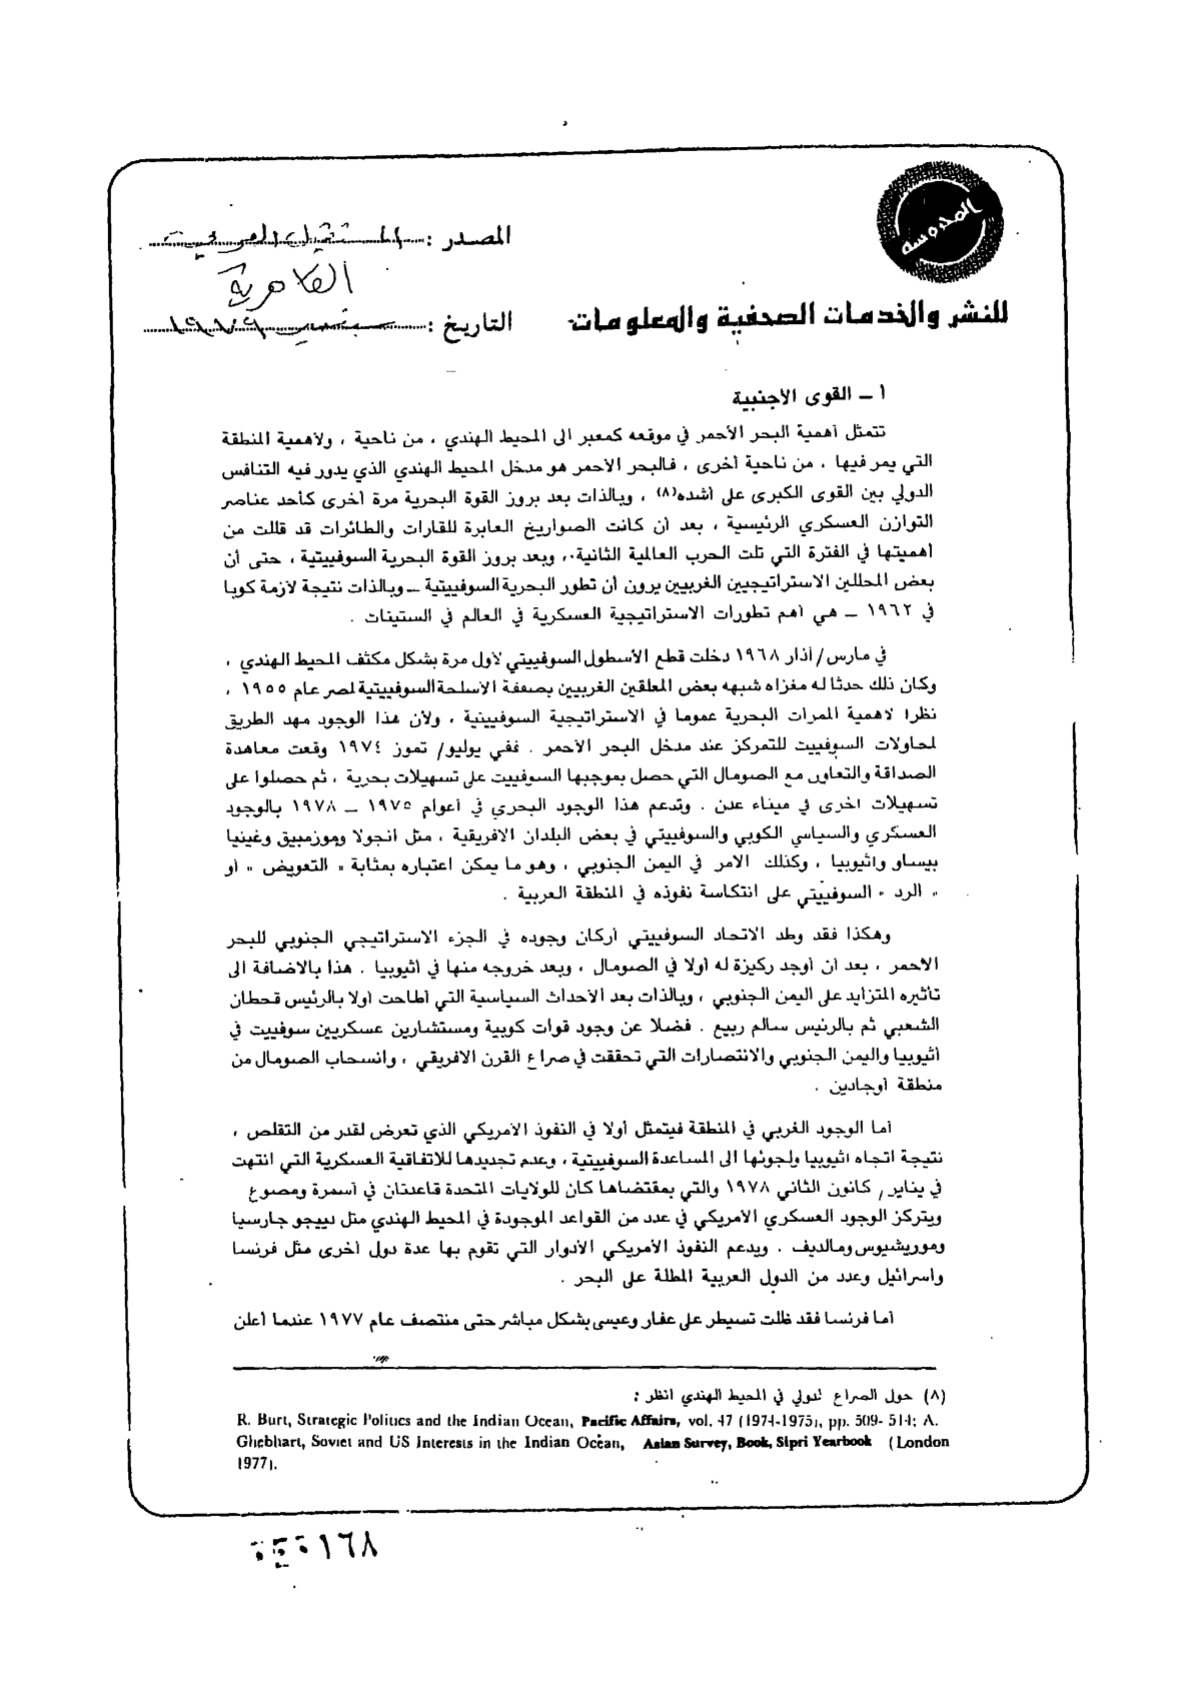 المحروسة
المصدر : المستقبل العربي
القاهرية
للنشر والخدمات الصحفية والمعلومات
التاريخ : سبتمبر ١٩٧٩
١ ــ القوى الاجنبية
تتمثل أهمية البحر الأحمر في موقعه كمعبر الى المحيط الهندي ، من ناحية ، ولأهمية المنطقة
التي يمر فيها ، من ناحية أخرى ، فالبحر الأحمر هو مدخل المحيط الهندي الذي يدور فيه التنافس
الدولي بين القوى الكبرى على أشده(٨) ، وبالذات بعد بروز القوة البحرية مرة أخرى كأحد عناصر
التوازن العسكري الرئيسية ، بعد أن كانت الصواريخ العابرة للقارات والطائرات قد قللت من
أهميتها في الفترة التي تلت الحرب العالمية الثانية ، وبعد بروز القوة البحرية السوفييتية ، حتى أن
بعض المحللين الاستراتيجيين الغربيين يرون أن تطور البحرية السوفييتية ــ وبالذات نتيجة لازمة كوبا
في ١٩٦٢ ــ هي أهم تطورات الاستراتيجية العسكرية في العالم في الستينات .
في مارس/آذار ١٩٦٨ دخلت قطع الأسطول السوفييتي لأول مرة بشكل مكثف المحيط الهندي ،
وكان ذلك حدثا له مغزاه شبهه بعض المعلقين الغربيين بصفقة الأسلحة السوفييتية لمصر عام ١٩٥٥ ،
نظرا لأهمية الممرات البحرية عموما في الاستراتيجية السوفييتية ، ولأن هذا الوجود مهد الطريق
لمحاولات السوفييت للتمركز عند مدخل البحر الأحمر . ففي يوليو/ تموز ١٩٧٤ وقعت معاهدة
الصداقة والتعاون مع الصومال التي حصل بموجبها السوفييت على تسهيلات بحرية ، ثم حصلوا على
تسهيلات أخرى في ميناء عدن . وتدعم هذا الوجود البحري في أعوام ١٩٧٥ ــ ١٩٧٨ بالوجود
العسكري والسياسي الكوبي والسوفييتي في بعض البلدان الافريقية ، مثل انجولا وموزمبيق وغينيا
بيساو واثيوبيا ، وكذلك الأمر في اليمن الجنوبي ، وهو ما يمكن اعتباره بمثابة « التعويض » أو
« الرد » السوفييتي على انتكاسة نفوذه في المنطقة العربية .
وهكذا فقد وطد الاتحاد السوفييتي أركان وجوده في الجزء الاستراتيجي الجنوبي للبحر
الأحمر ، بعد أن أوجد ركيزة له أولا في الصومال ، وبعد خروجه منها في أثيوبيا . هذا بالاضافة الى
تأثيره المتزايد على اليمن الجنوبي ، وبالذات بعد الأحداث السياسية التي أطاحت أولا بالرئيس قحطان
الشعبي ثم بالرئيس سالم ربيع . فضلا عن وجود قوات كوبية ومستشارين عسكريين سوفييت في
أثيوبيا واليمن الجنوبي والانتصارات التي تحققت في صراع القرن الافريقي ، وانسحاب الصومال من
منطقة أوجادين .
أما الوجود الغربي في المنطقة فيتمثل أولا في النفوذ الأمريكي الذي تعرض لقدر من التقلص ،
نتيجة اتجاه اثيوبيا ولجوئها الى المساعدة السوفييتية ، وعدم تجديدها للاتفاقية العسكرية التي انتهت
في يناير / كانون الثاني ١٩٧٨ والتي بمقتضاها كان للولايات المتحدة قاعدتان في أسمرة ومصوع
ويتركز الوجود العسكري الأمريكي في عدد من القواعد الموجودة في المحيط الهندي مثل دييجو جارسيا
وموريشيوس ومالديف . ويدعم النفوذ الأمريكي الأدوار التي تقوم بها عدة دول أخرى مثل فرنسا
واسرائيل وعدد من الدول العربية المطلة على البحر .
أما فرنسا فقد ظلت تسيطر على عفار وعيسى بشكل مباشر حتى منتصف عام ١٩٧٧ عندما أعلن
(٨) حول الصراع الدولي في المحيط الهندي انظر :
R. Burt, Strategic Politics and the Indian Ocean, Pacific Affairs, vol. 47 (1974-1975), pp. 509- 514; A.
Ghebhart, Soviet and US Interests in the Indian Ocean, Asian Survey, Book, Sipri Yearbook (London
1977).